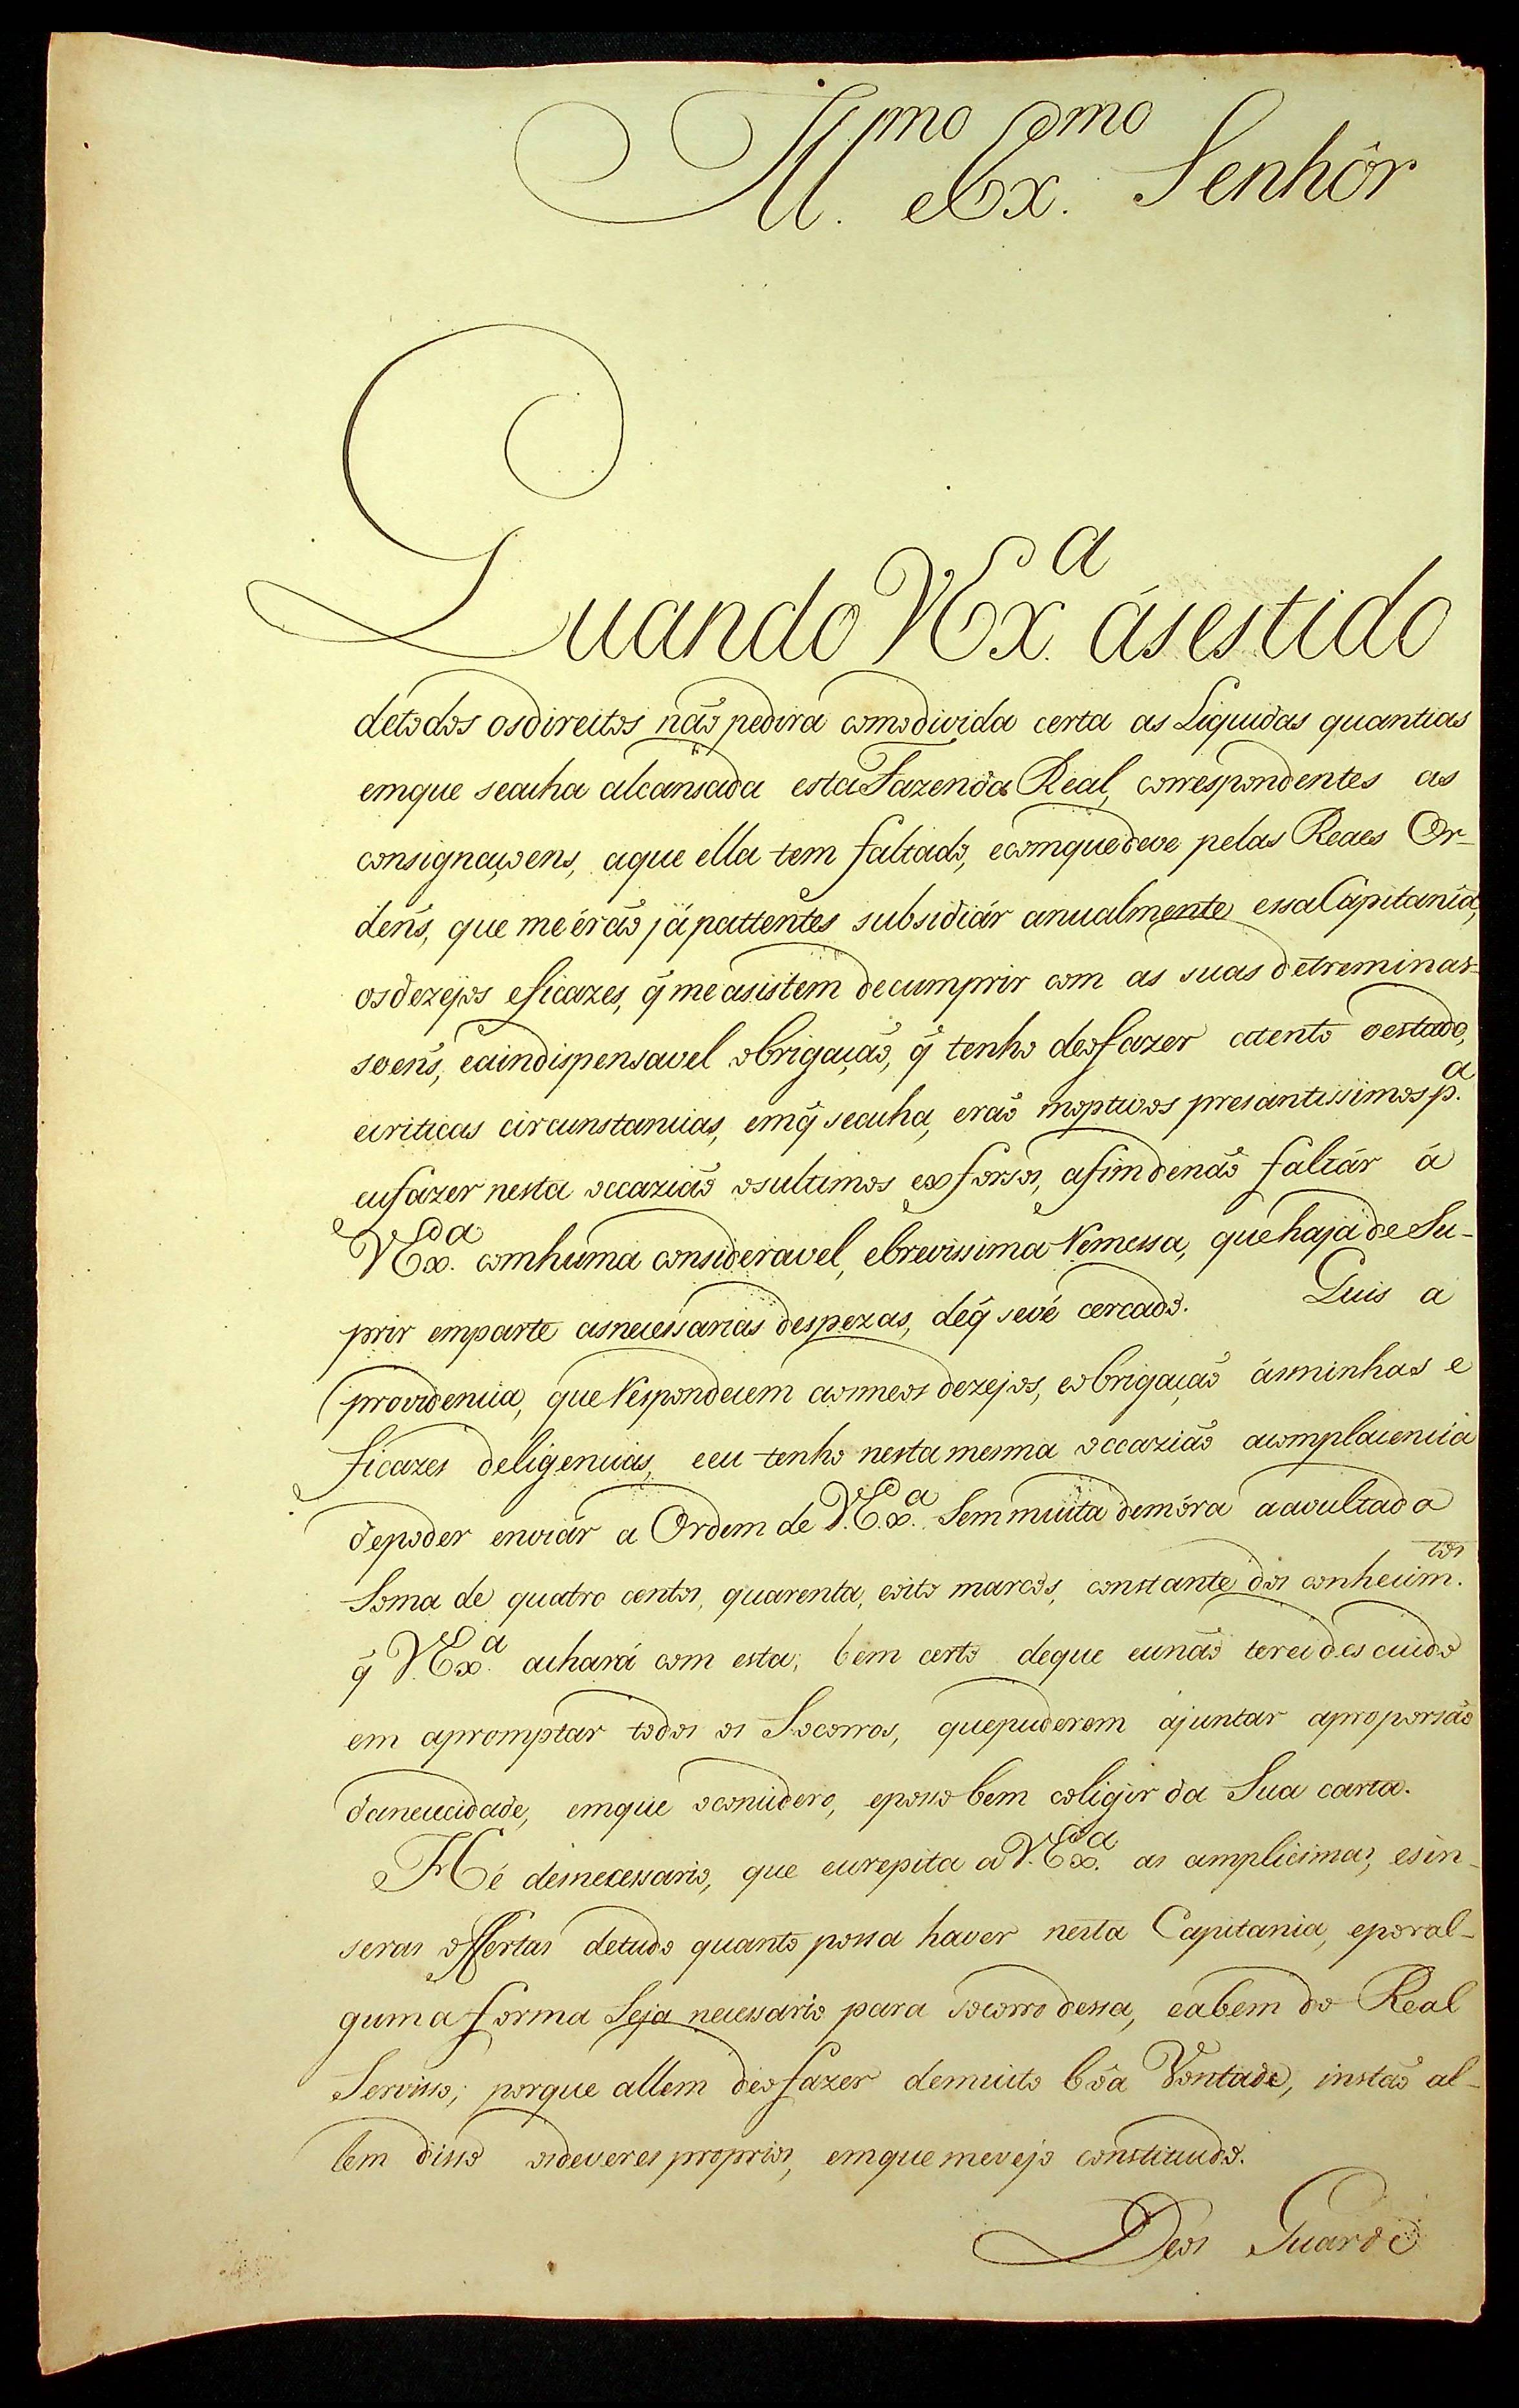 Ill.mo eEx.mo Senhôr
Quando VEx.a ásestido
detodos osdireitos naõ pedira comodivida certa as Liquidas quantias
emque seacha alcansada esta Fazenda Real, correspondentes as
consignaçoens, aque ella tem faltado, ecomquedeve pelas Reaes Or-
dens, que me éraõ já pattentes subsidiár anualmente essaCapitania,
osdezejos eficazes, q̃ me asistem decumprir com as suas detreminas-
soens, eaindispensavel obrigaçaõ, q̃ tenho deofazer atento oestado,
ecriticas circunstancias, emq̃ seacha, eraõ moptivos presantissimos p.a
eufazer nesta occaziaõ osultimos exforsos, afimdenaõ faltár á
VEx.a comhuma consideravel, ebrevissima Remessa, quehaja de Su-
prir emparte asnecessarias despezas, deq̃ sevé cercado. Quis a
providencia, que Respondecem aosmeos dezejos, eobrigaçaõ ásminhas e
ficazes deligencias, eeu tenho nestamesma occaziaõ acomplacencia
depoder enviár a Ordem de V.Ex.a Sem muita demóra aavultada
Soma de quatro centos, quarenta, eoito marcos, constante dos conhecim.tos
q̃ VEx.a achará com esta; bem certo deque eunaõ terei descuido
em apromptar todos os Socorros, quepuderem ajuntar aproporsaõ
danececidade, emque oconsidero, eposso bem coligir da Sua carta.
Hé desnecessario, que eurepita a V.Ex.a as amplicimas, esin-
seras offertas detudo quanto possa haver nesta Capitania, eporal-
guma forma Seja necessario para socorro dessa, eabem do Real
Servisso; porque allem deofazer demuito bôa Vontade, instaõ al-
lem disso osdeveres proprios, emquemevejo constituido.
Deos Guarde